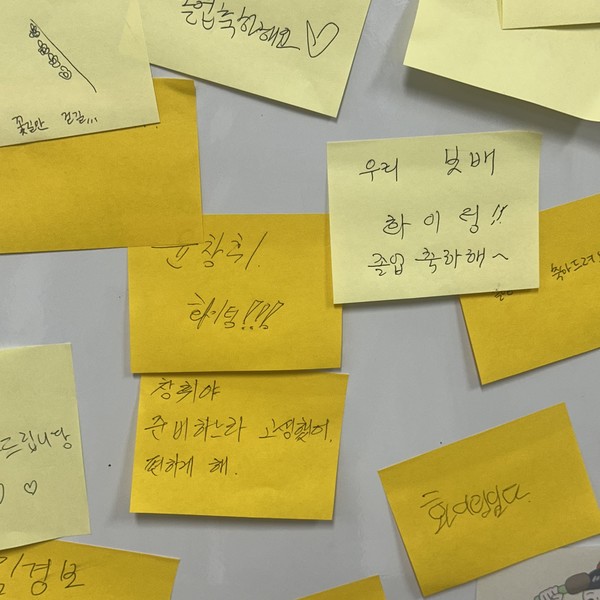 졸업축하해요
꽃길만 걷길...
우리 보배
화이링!!
졸업 축하해~
윤창휘
화이팅!!!!
축하드려
창휘야
준비하느라 고생했어.
편하게 해.
드립니당
임경보